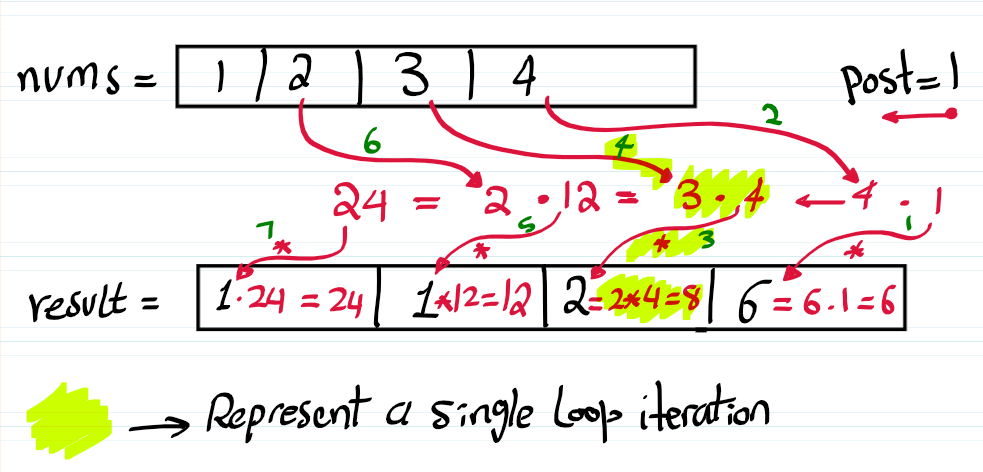 nums = 1 | 2 | 3 | 4 post=1
6 4 2
24 = 2 · 12 = 3 · 4 ← 4 · 1
7 * 5 * * 3 1 *
result = 1·24 = 24 | 1*12=12 | 2=2*4=8 | 6=6.1=6
→ Represent a single Loop iteration